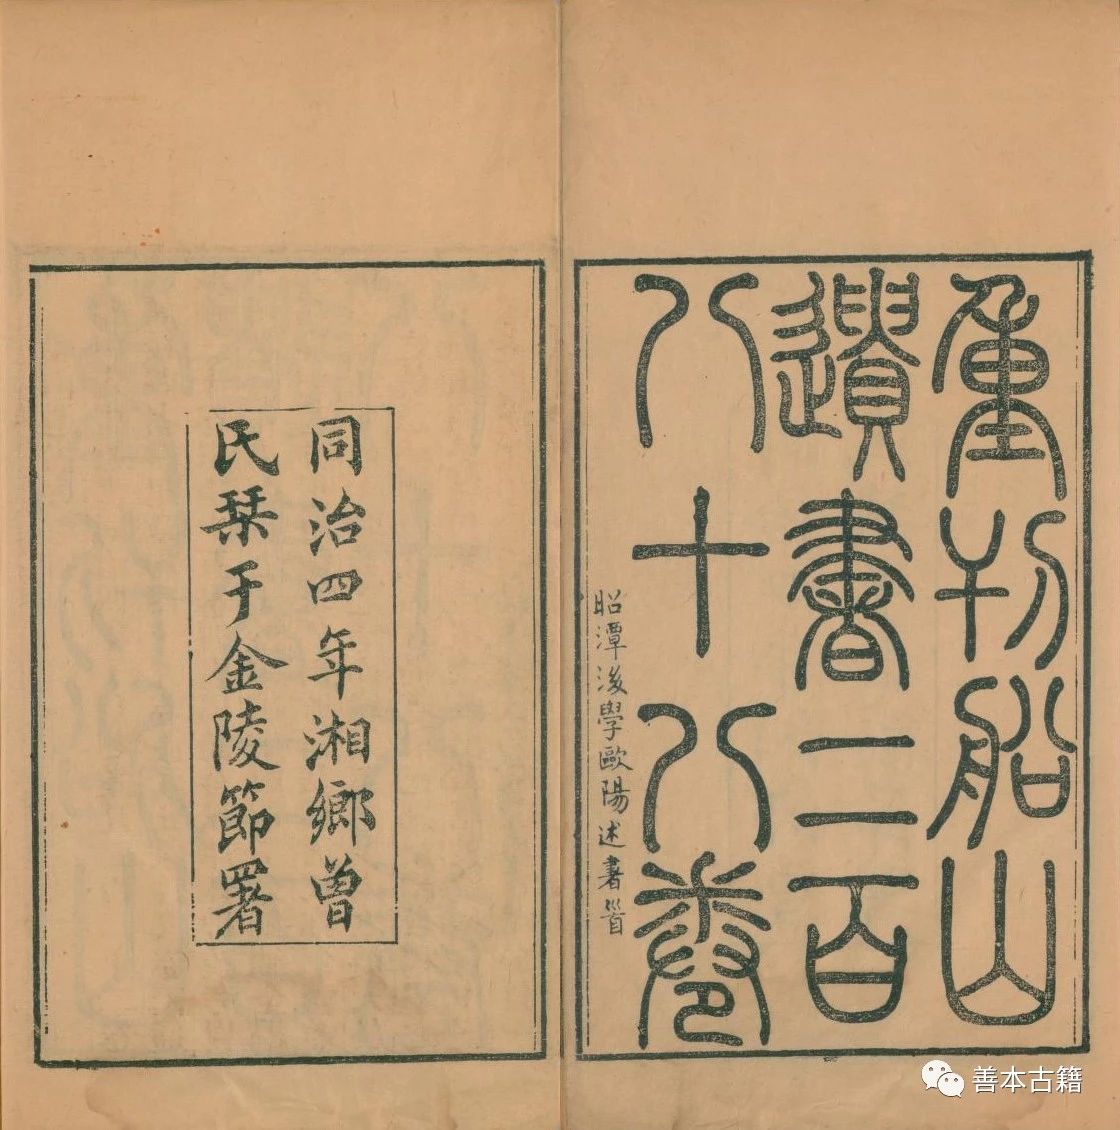 重刊船山
遺書二百
八十八卷
昭潭後學歐陽述書首
同治四年湘鄉曾
氏栞于金陵節署
善本古籍